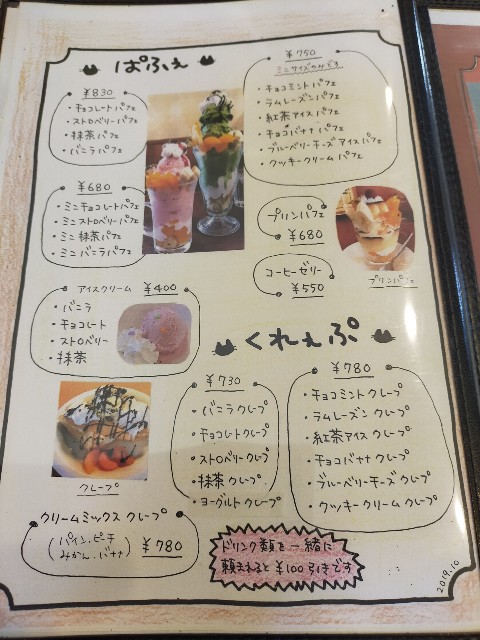 ぱふぇ
¥830
・チョコレートパフェ
・ストロベリーパフェ
・抹茶パフェ
・バニラパフェ
¥680
・ミニチョコレートパフェ
・ミニストロベリーパフェ
・ミニ抹茶パフェ
・ミニバニラパフェ
¥750
ミニサイズのみです
・チョコミントパフェ
・ラムレーズンパフェ
・紅茶アイスパフェ
・チョコバナナパフェ
・ブルーベリーチーズアイスパフェ
・クッキークリームパフェ
プリンパフェ
¥680
プリンパフェ
コーヒーゼリー
¥550
アイスクリーム ¥400
・バニラ
・チョコレート
・ストロベリー
・抹茶
くれぇぷ
¥730
・バニラクレープ
・チョコレートクレープ
・ストロベリークレープ
・抹茶クレープ
・ヨーグルトクレープ
¥780
・チョコミントクレープ
・ラムレーズンクレープ
・紅茶アイスクレープ
・チョコバナナクレープ
・ブルーベリーチーズクレープ
・クッキークリームクレープ
クレープ
クリームミックスクレープ
(パイン、ピーチ
みかん、バナナ) ¥780
ドリンク類を一緒に
頼まれると¥100引きです
2019.10